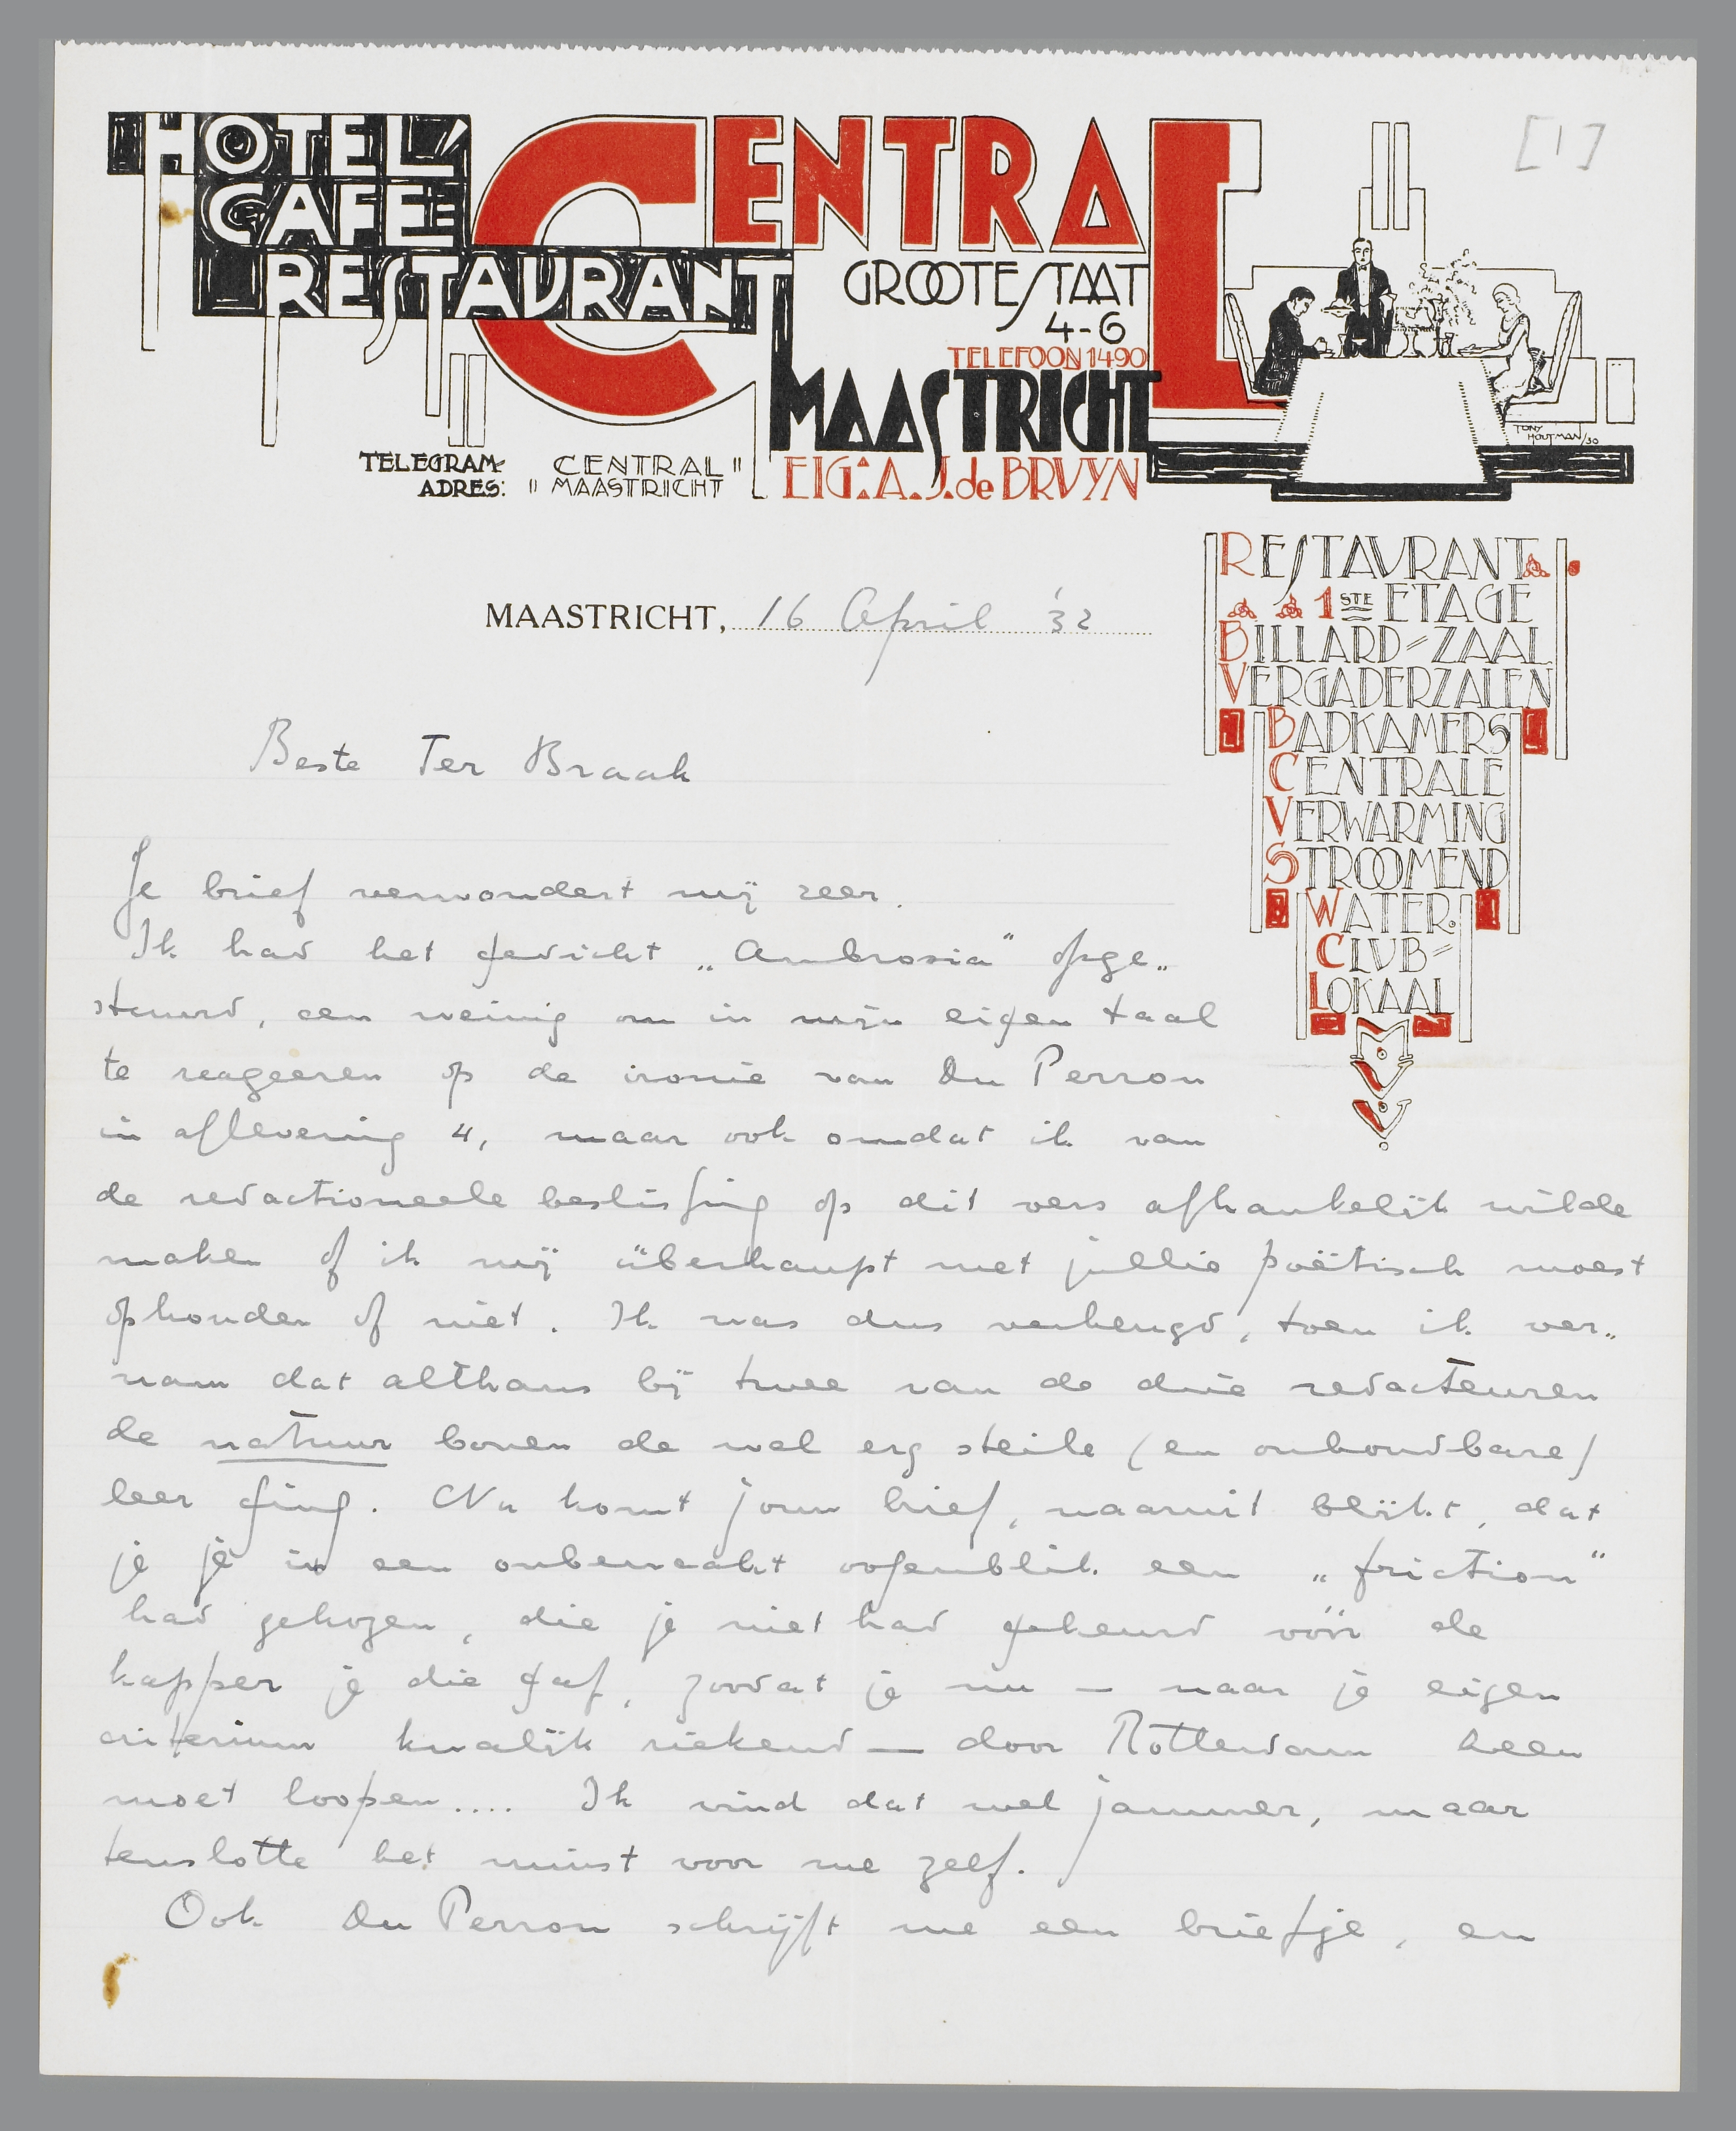 HOTEL'
CAFE=
RESTAURANT
CENTRAL
GROOTESTAAT
4-6
TELEFOON 1490
MAASTRICHT
EIG: A. J. de BRUYN
TELEGRAM-
ADRES:
CENTRAL "
" MAASTRICHT
TONY
HOUTMAN/30
[1]
RESTAURANT
1STE ETAGE
BILLARD-ZAAL
VERGADERZALEN
BADKAMERS
CENTRALE
VERWARMING
STROOMEND
WATER.
CLUB-
LOKAAL
MAASTRICHT, 16 April '32
Beste Ter Braak
Je brief verwondert mij zeer.
Ik had het gedicht „Ambrosia" opge„
stuurd, een weinig om in mijn eigen taal
te reageeren op de ironie van Du Perron
in aflevering 4, maar ook omdat ik van
de redactioneele beslissing op dit vers afhankelijk wilde
maken of ik mij überhaupt met jullie poëtisch moest
ophouden of niet. Ik was dus verheugd, toen ik ver„
nam dat althans bij twee van de drie redacteuren
de natuur boven de wel erg steile (en onhoudbare)
leer ging. Nu komt jouw brief, waaruit blijkt, dat
je je in een onbewaakt oogenblik een „friction"
had gekozen, die je niet had gekeurd vóór de
kapper je die gaf, zoodat je nu — naar je eigen
criterium kwalijk riekend — door Rotterdam heen
moet loopen.... Ik vind dat wel jammer, maar
tenslotte het minst voor me zelf.
Ook Du Perron schrijft me een briefje, en